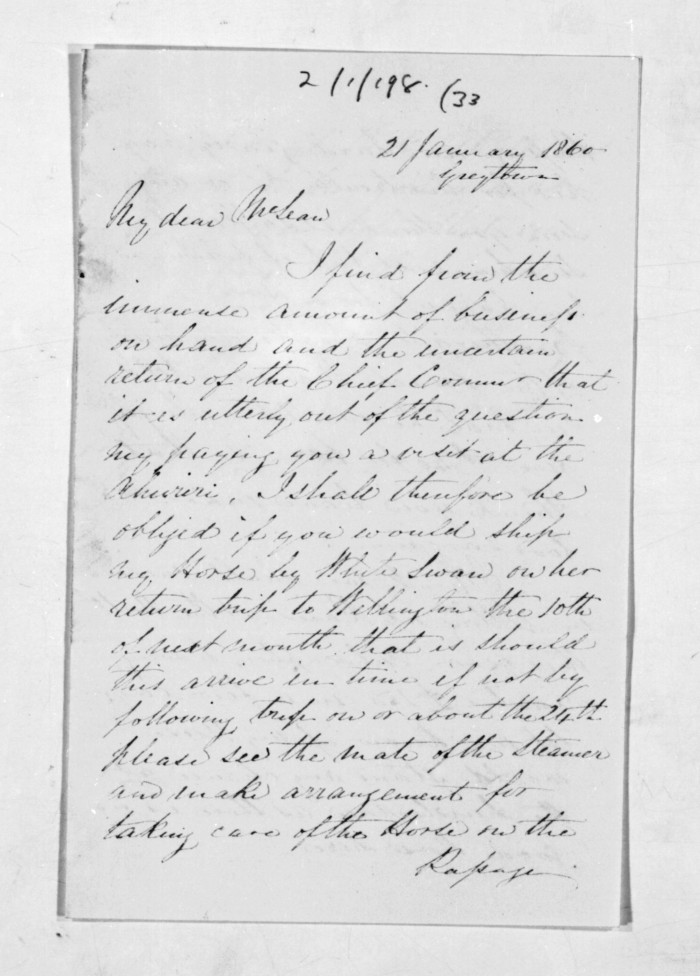 2/1/198. (33
21 January 1860
Greytown
My dear McLean
I find from the
immense amount of business
on hand and the uncertain
return of the Chief Commr that
it is utterly out of the question
my paying you a visit at the
Ahuriri, I shall therefore be
obliged if you would ship
my Horse by White Swan on her
return trip to Wellington the 10th
of next month that is should
this arrive in time if not by
following trip on or about the 24th
please see the mate of the Steamer
and make arrangement for
taking care of the Horse on the
Passage